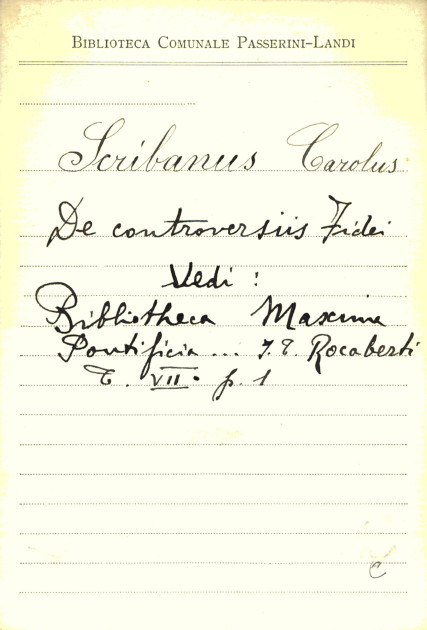 BIBLIOTECA COMUNALE PASSERINI-LANDI
Scribanus Carolus
De controversiis Fidei
Vedi :
Bibliotheca Maxima
Pontificia ... J. T. Rocaberti
T. VII. p. 1
C